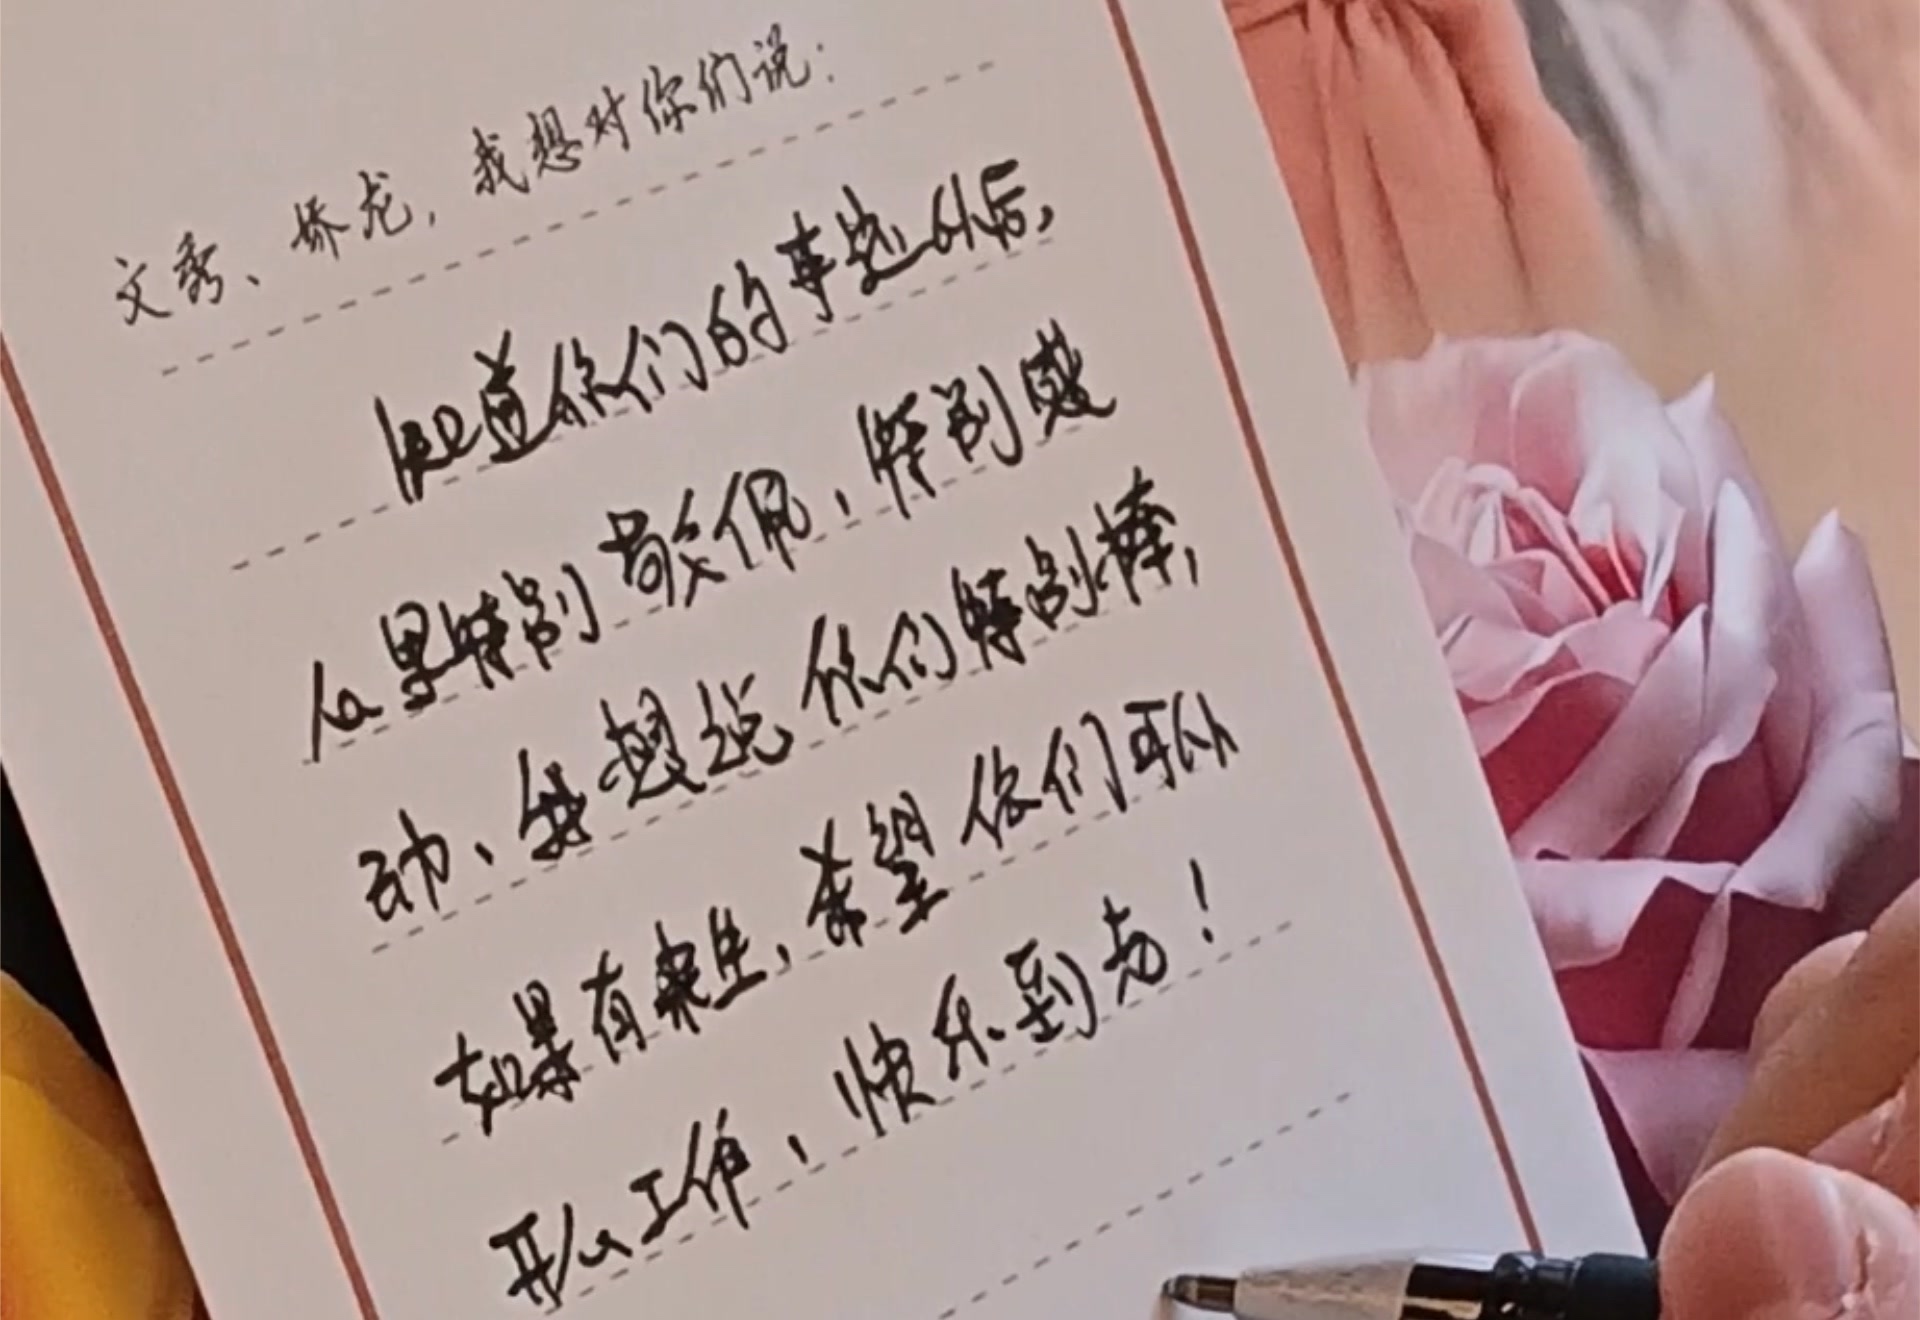 文秀、娇龙，我想对你们说：
知道你们的事迹以后，
心里特别敬佩，特别感
动、我想说你们特别棒，
如果有来生，希望你们可以
开心工作，快乐到老！